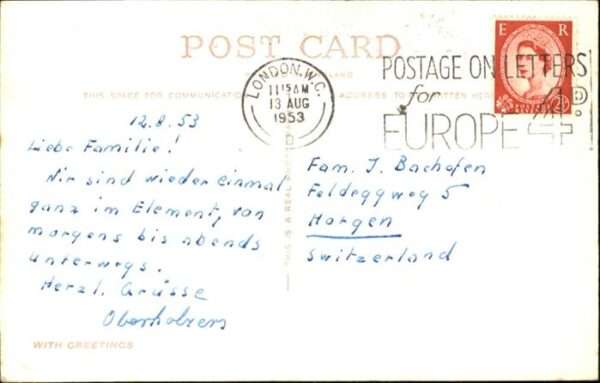 POST CARD
THIS SPACE FOR COMMUNICATION ADDRESS TO BE WRITTEN HERE
LONDON.W.C.
11 15 AM
13 AUG
1953
D
POSTAGE ON LETTERS
for
EUROPE 4D
E R
THIS IS A REAL
12.8.53
Liebe Familie!
Wir sind wieder einmal
ganz im Element, von
morgens bis abends
unterwegs.
Herzl. Grüsse
Oberholzers
Fam. J. Bachofen
Feldeggweg 5
Horgen
Switzerland
WITH GREETINGS